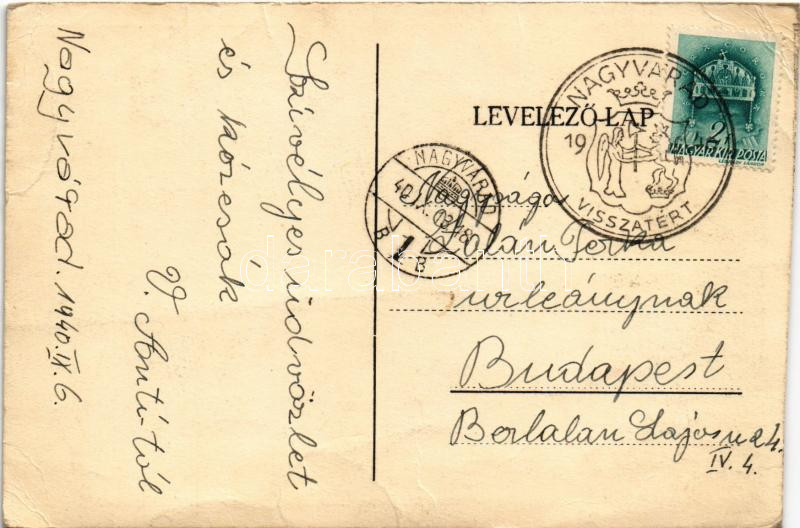 Nagyvárad. 1940.IX.6.
Szívélyes üdvözlet
és kézcsók
V. Antitól
LEVELEZŐ-LAP
NAGYVÁRAD
19
VISSZATÉRT
2f
MAGYAR KIR. POSTA
NAGYVÁRAD
40.IX.
1
B B
Nagysága
Zalán Terka
urleánynak
Budapest
Lajos u 24.
IV. 4.
darabanth